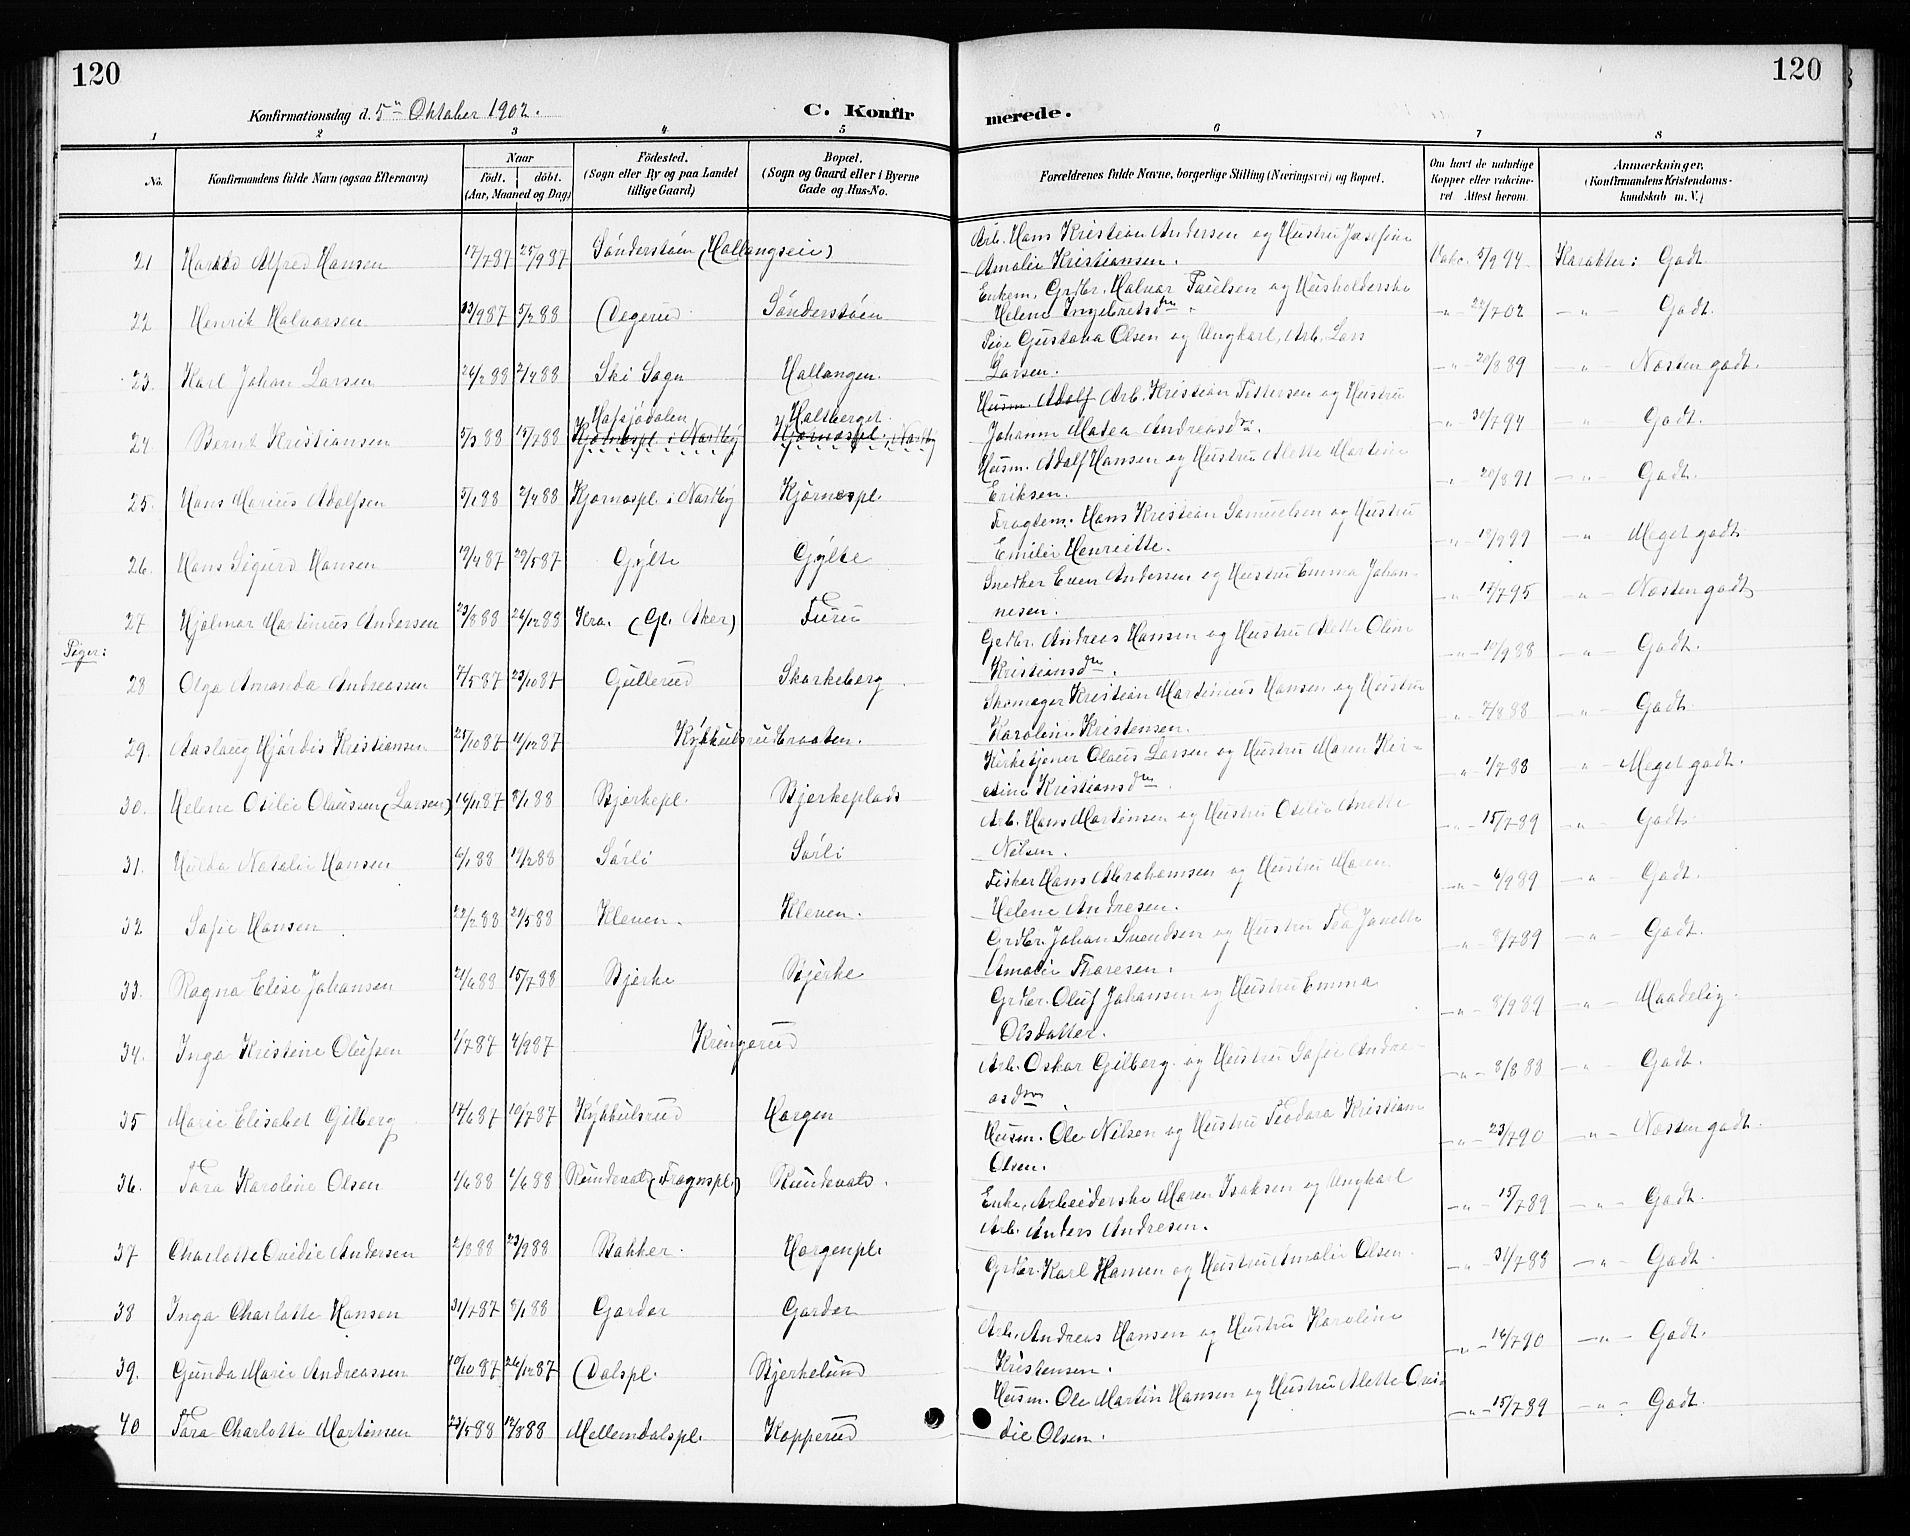 120
120
Konfirmationsdag d. 5te Oktober 1902.
C. Konfirmerede.
1 2 3 4 5 6 7 8
No.
Konfirmandens fulde Navn (ogsaa Efternavn)
Naar
Født. døbt.
(Aar, Maaned og Dag)
Födested.
(Sogn eller By og paa Landet
tillige Gaard)
Bopæl.
(Sogn og Gaard eller i Byerne
Gade og Hus-No.
Forældrenes fulde Navne, borgerlige Stilling (Næringsvei) og Bopæl.
Om havt de naturlige
Kopper eller vakcineret
Attest herom.
Anmærkninger,
(Konfirmandens Kristendomskundskab
m. V.)
21 Harald Alfred Hansen 17/7 87 25/9 87 Sønderstøen (Hallangseie) Arb. Hans Kristian Andersen og Hustru Josefine
Amalie Kristiansen. Vakc. 5/9 94 Karakter: Godt
22 Henrik Halvorsen 13/9 87 5/2 88 Degerud Sønderstøen Enkem. Grdbr. Halvor Paulsen og Husholderske
Helene Ingebretsdtr. 22/7 02 Godt.
23. Karl Johan Larsen 26/2 88 2/4 88 Ski Sogn Hallangen. Pige Gustava Olsen og Ungkarl, Arb. Lars
Larsen. 20/8 89 Næsten godt.
24 Bernt Kristiansen 5/3 88 15/7 88 Hafsjødalen Holtberget Husm. Adolf Arb. Kristian Pettersen og Hustru
Kjørnespl. i Nordby Kjørnespl. Nordby Johanne Matea Andreasdtr. 30/7 94 Godt.
25. Hans Marius Adolfsen 5/1 88 2/4 88 Kjørnespl. i Nordby Kjørnespl. Husm. Adolf Hansen og Hustru Alette Martine
Eriksen. 20/8 91 Godt.
26. Hans Sigurd Hansen 19/4 87 29/5 87 Gylte Gylte Hans Kristian Samuelsen og Hustru
Emilie Henreitte. Meget godt
27 Hjalmar Martinius Andersen 23/8 88 26/12 88 Kra. (Gl. Aker) Furu Snedker Even Andersen og Hustru Emma Johannesen.
17/7 95 Næsten godt
Piger:
28 Olga Amanda Andreassen 7/5 87 23/10 87 Gullerud Skorkeberg Grdbr. Andreas Hansen og Hustru Alette Oline
Kristiansdtr. 10/9 88 Godt.
29. Aaslaug Hjørdis Kristiansen 25/10 87 4/12 87 Kykkelsrud Braaten. Skomager Kristian Martinius Hansen og Hustru
Karoline Kristensen. 7/8 88 Godt.
30. Helene Otilie Olausen (Larsen) 16/11 87 8/1 88 Bjerkepl. Bjerkeplads Kirketjener Olaus Larsen og Hustru Maren Kirstine
Kristiansdtr. 1/7 88 Meget godt.
31. Hulda Natalie Hansen 6/1 88 19/2 88 Sørli Sørli Arb. Hans Martinsen og Hustru Otilie Anette
Nilsen. 15/7 89 Godt.
32 Sofie Hansen 22/2 88 27/5 88 Kleven. Kleven. Fisker Hans Abrahamsen og Hustru Maren
Helene Andresen. 6/9 89 Godt.
33. Ragna Elise Johansen 21/6 88 15/7 88 Bjerke Bjerke Grdbr. Johan Svendsen og Hustru Tea Janette
Amalie Thoresen. 8/7 89 Godt.
34. Inga Kristine Olufsen 1/7 87 4/9 87 Kringerud Grdbr. Oluf Johansen og Hustru Emma
Olsdatter. 8/9 89 Maadelig.
35 Marie Elisabet Gilberg 17/6 87 10/7 87 Kykkelsrud Horgen Arb. Oskar Gilberg og Hustru Sofie Andreasdtr.
8/8 88 Godt.
36. Tora Karoline Olsen 4/6 88 Rundevold (Frognspl.) Rundevold. Husm. Ole Nilsen og Hustru Teodora Kristiane
Olsen. 23/7 90 Næsten godt.
37 Charlotte Ovidie Andersen 2/8 88 23/9 88 Bakker. Horgenpl. Enke, Arbeiderske Maren Isaksen og Ungkarl
Arb. Anders Andresen. 15/7 89 Godt.
38 Inga Charlotte Hansen 31/7 87 8/1 88 Garder Garder Grdbr. Karl Hansen og Hustru Amalie Olsen. 31/7 88 Godt.
39. Gunda Marie Andreassen 10/10 87 26/12 87 Dalspl. Bjerkelund Arb. Andreas Hansen og Hustru Karoline
Kristensen. 16/7 90 Godt.
40 Tora Charlotte Martinsen 23/5 88 12/8 88 Mellemdalspl. Kopperud Husm. Ole Martin Hansen og Hustru Alette Ovidie
Olsen. 15/7 89 Godt.